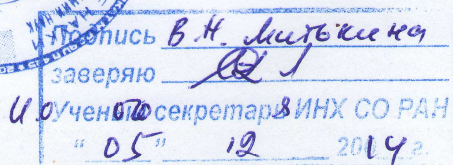 Подпись В.Н. Митькина
заверяю
И.О Ученого секретаря ИНХ СО РАН
"05" 12 2014 г.